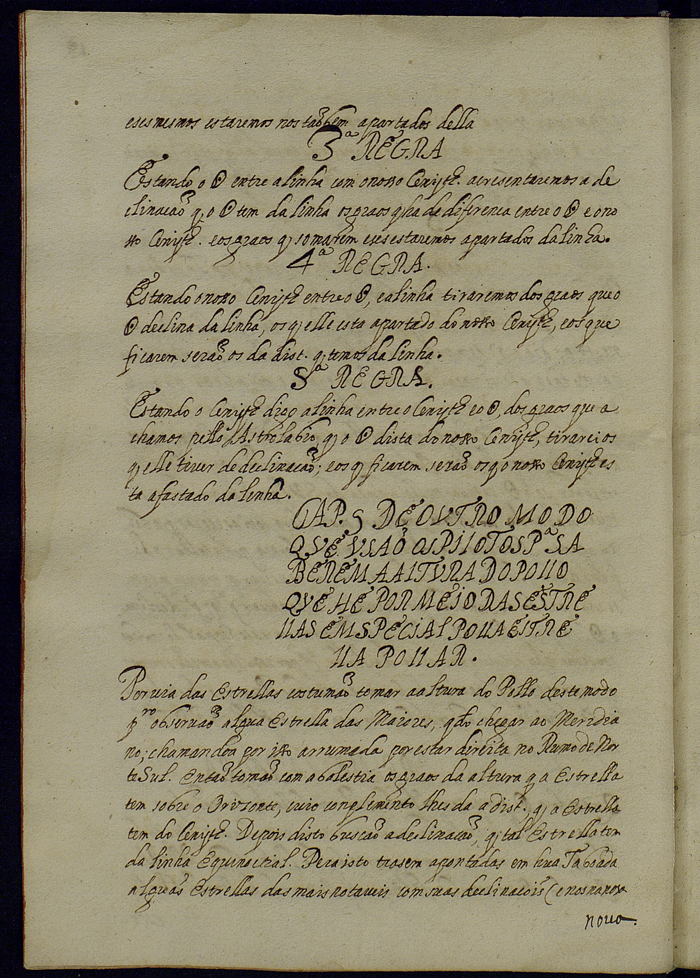 eses mesmos estaremos nos taõbem apartados della
3ª REGRA
Estando o O entre a linha com o nosso Cenyth. acresentaremos a de
clinacaõ q̃ o O tem da linha os graos q̃ ha de diferenca entre o O e o no
sso Cenyth. e os graos q̃ somarem eses estaremos apartados da linha.
4ª REGRA.
Estando o nosso Cenyth entre o O, e a linha tiraremos dos graos que o
O declina da linha, os q̃ elle esta apartado do nosso Cenyth, e os que
ficarem seraõ os da dist. q̃ temos da linha.
5ª REGRA.
Estando o Cenyth digo a linha entre o Cenyth e o O, dos graos que a
chamos pello Astrolabio, q̃ o O dista do nosso Cenyth, tirarei os
q̃ elle tiver de declinacaõ; e os q̃ ficarem seraõ os q̃ o nosso Cenyth es
ta afastado da linha.
CAP. 5 DE OVTRO MODO
QVE VSAÕ OS PILOTOS Pª SA
BEREM A ALTVRA DO POLLO
QVE HE POR MEIO DAS ESTRE
LLAS EM SPECIAL POLLA ESTRE
LLA POLLAR.
Por via das Estrellas costumaõ tomar a altura do Pollo deste modo
pro observaõ algua Estrella das Maiores, qdo chegar ao Meridia
no; chamandoa por isso arrumada por estar direita no Rumo de Nor
te Sul. Entaõ tomaõ com a balestia os graos da altura q̃ a Estrella
tem sobre o Orizonte, cuio conplemento lhes da a dist. q̃ a Estrella
tem do Cenyth. Depois disto buscaõ a declinacaõ, q̃ tal Estrella tem
da linha Equinoctial. Pera isto trasem apontadas em hua Taboada
alguãs Estrellas das mais notaveis com suas declinacois (e nos na nossa
nova.